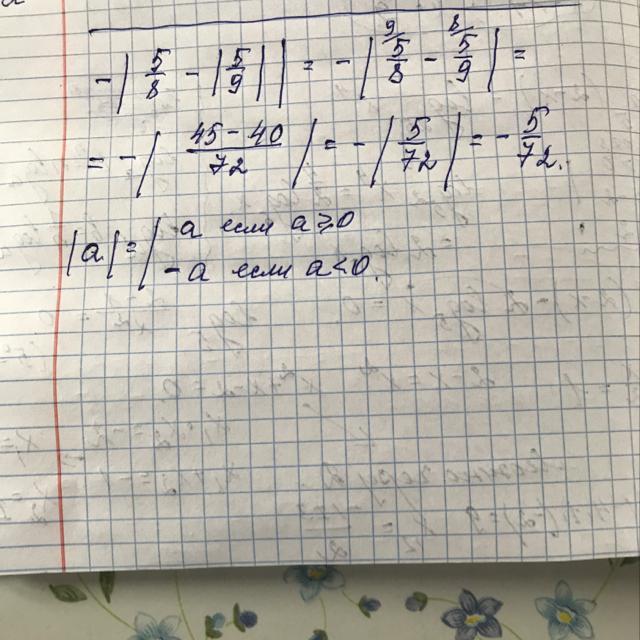 -| 5/8 - |5/9| | = -| 9 5/8 - 8 5/9 | =
= -| 45-40/72 | = -| 5/72 | = - 5/72.
|a| = | a если a ≥ 0
- a если a < 0.